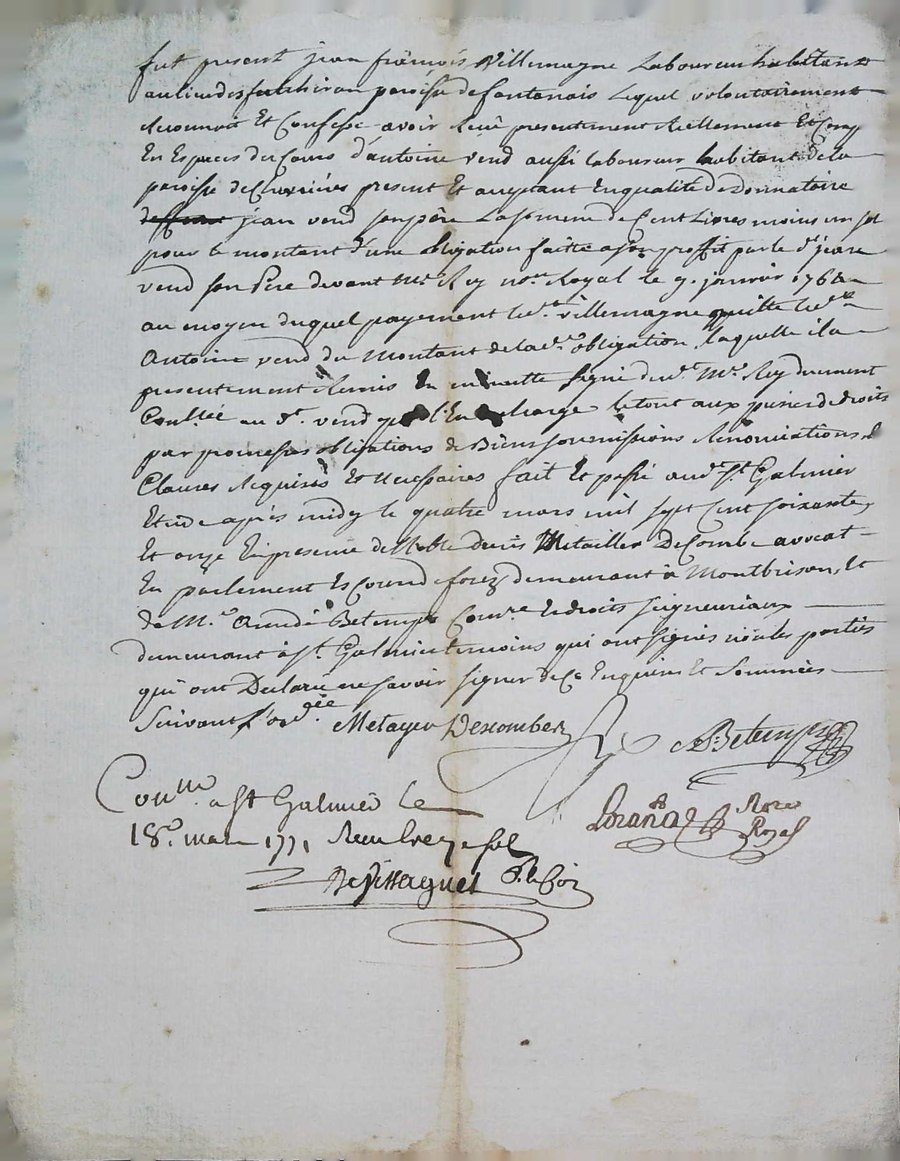 fut present jean françois Villemagne Laboureur habitant
au lieu des paroisse de fontanais Lequel volontairement
Reconnoit Et Confesse avoir Receu presentement Reellement Et Comp
En Especes du Cours d'antoine vend aussi laboureur habitant de la
paroisse de Chevrieres present Et acceptant En qualité de Donnataire
jean vend son pere La somme de Cent Livres moins un sol
pour le montant d'une obligation faitte a son proffit par le d. jean
vend son Pere devant Me. Rey nore. Royal le 9. janvier 1764
au moyen duquel payement le d. Villemagne quitte led.
Antoine vend du Montant de lad. obligation, laquelle il a
presentement Remis En minutte signé dud. Me. Rey duement
Conllée au d. vend qui l'En charge le tout aux peines de droits
par promesses obligations de Biens soumissions Renonciations &
Clauses Requises Et necessaires fait Et passé aud. St. Galmier
Etude après midy le quatre mars mil sept cent soixante
Et onze En presence de Noble denis Metailler DeCombe avocat
En parlement Es Cour de forez demeurant à Montbrison, Et
de M. André Betemps Conre. Es droits seigneuriaux
demeurant à St. Galmier temoins qui ont signés non les parties
qui ont Declaré ne savoir signer de Ce Enquiers Et Sommées
Suivant l'ordée. Metayer Descombes Betemps
Conllé a St Galmier le
18e. mars 1771 Receu treize sols
Nore
Royal